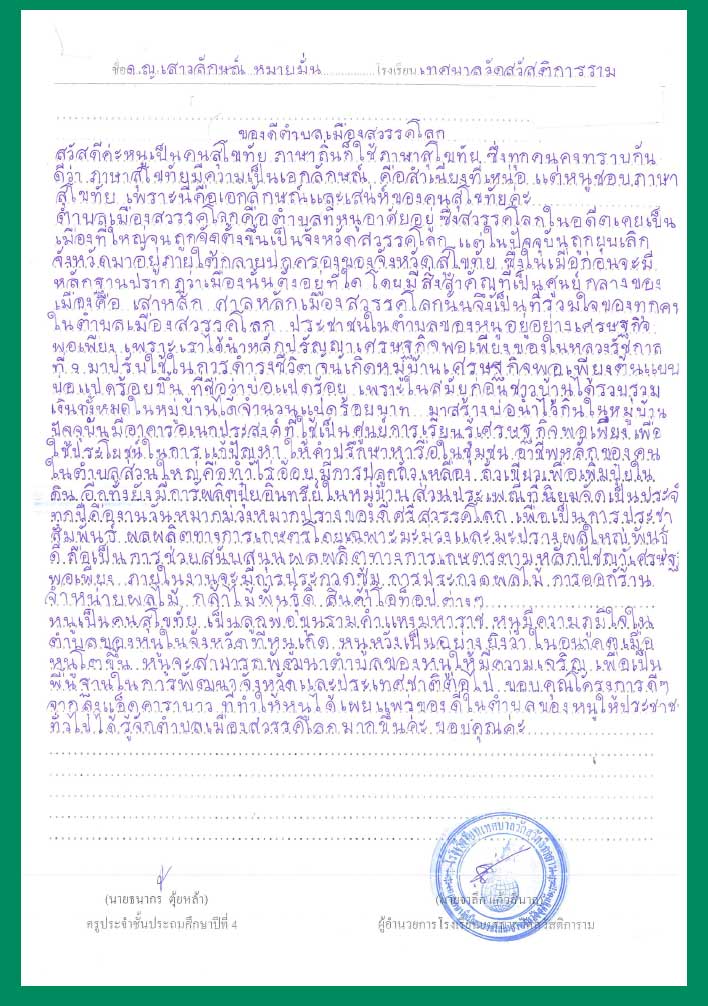 ชื่อ ด.ญ.เสาวลักษณ์ หมายมั่น โรงเรียน เทศบาลวัดสวัสติการราม
ของดีตำบลเมืองสวรรคโลก
สวัสดีค่ะหนูเป็นคนสุโขทัย ภาษาถิ่นก็ใช้ภาษาสุโขทัย ซึ่งทุกคนคงทราบกัน
ดีว่า ภาษาสุโขทัยมีความเป็นเอกลักษณ์ คือสำเนียงที่เหน่อ แต่หนูชอบภาษา
สุโขทัย เพราะนี่คือเอกลักษณ์และเสน่ห์ของคนสุโขทัยค่ะ
ตำบลเมืองสวรรคโลกคือตำบลที่หนูอาศัยอยู่ ซึ่งสวรรคโลกในอดีตเคยเป็น
เมืองที่ใหญ่จนถูกจัดตั้งขึ้นเป็นจังหวัดสวรรคโลก แต่ในปัจจุบันถูกยุบเลิก
จังหวัดมาอยู่ภายใต้การปกครองของจังหวัดสุโขทัย ซึ่งในเมื่อก่อนจะมี
หลักฐานปรากฏว่าเมืองนั้นตั้งอยู่ที่ใด โดยมีสิ่งสำคัญที่เป็นศูนย์กลางของ
เมืองคือ เสาหลัก ศาลหลักเมืองสวรรคโลกนั้นจึงเป็นที่รวมใจของทุกคน
ในตำบลเมืองสวรรคโลก ประชาชนในตำบลของหนูอยู่อย่างเศรษฐกิจ
พอเพียง เพราะเราได้นำหลักปรัญญาเศรษฐกิจพอเพียงของในหลวงรัชกาล
ที่ ๙ มาปรับใช้ในการดำรงชีวิต จนเกิดหมู่บ้านเศรษฐกิจพอเพียงต้นแบบ
บ่อแปดร้อยขึ้น ที่ชื่อว่าบ่อแปดร้อย เพราะในสมัยก่อนชาวบ้านได้รวบรวม
เงินทั้งหมดในหมู่บ้านได้จำนวนแปดร้อยบาท มาสร้างบ่อน้ำไว้กินในหมู่บ้าน
ปัจจุบันมีอาคารอเนกประสงค์ที่ใช้เป็นศูนย์การเรียนรู้เศรษฐกิจพอเพียง เพื่อ
ใช้ประโยชน์ในการแก้ปัญหา ให้คำปรึกษาหารือในชุมชน อาชีพหลักของคน
ในตำบลส่วนใหญ่คือทำไร่อ้อย มีการปลูกถั่วเหลือง ถั่วเขียวเพื่อเพิ่มปุ๋ยใน
ดิน อีกทั้งยังมีการผลิตปุ๋ยอินทรีย์ในหมู่บ้าน ส่วนประเพณีที่นิยมจัดเป็นประจำ
ทุกปีคืองานวันหมากม่วงหมากปรางของดีศรีสวรรคโลก เพื่อเป็นการประชา
สัมพันธ์ ผลผลิตทางการเกษตรโดยเฉพาะมะม่วงและมะปรางผลใหญ่พันธุ์
ดี ถือเป็นการช่วยสนับสนุนผลผลิตทางการเกษตรตามหลักปรัชญาเศรษฐ
พอเพียง ภายในงานจะมีการประกวดซุ้ม การประกวดผลไม้ การออกร้าน
จำหน่ายผลไม้ กล้าไม้พันธุ์ดี สินค้าโอท็อปต่างๆ
หนูเป็นคนสุโขทัย เป็นลูกพ่อขุนรามคำแหงมหาราช หนูมีความภูมิใจใน
ตำบลของหนูในจังหวัดที่หนูเกิด หนูหวังเป็นอย่างยิ่งว่า ในอนาคตเมื่อ
หนูโตขึ้น หนูจะสามารถพัฒนาตำบลของหนูให้มีความเจริญ เพื่อเป็น
พื้นฐานในการพัฒนาจังหวัดและประเทศชาติต่อไป ขอบคุณโครงการดีๆ
จากลุงแอ๊ดคาราบาว ที่ทำให้หนูได้เผยแพร่ของดีในตำบลของหนูให้ประชาช
ทั่วไปได้รู้จักตำบลเมืองสวรรคโลกมากขึ้นค่ะ ขอบคุณค่ะ
(นายธนากร ตุ้ยหล้า)
ครูประจำชั้นประถมศึกษาปีที่ 4
ผู้อำนวยการโรงเรียนเทศบาลวัดสวัสติการาม